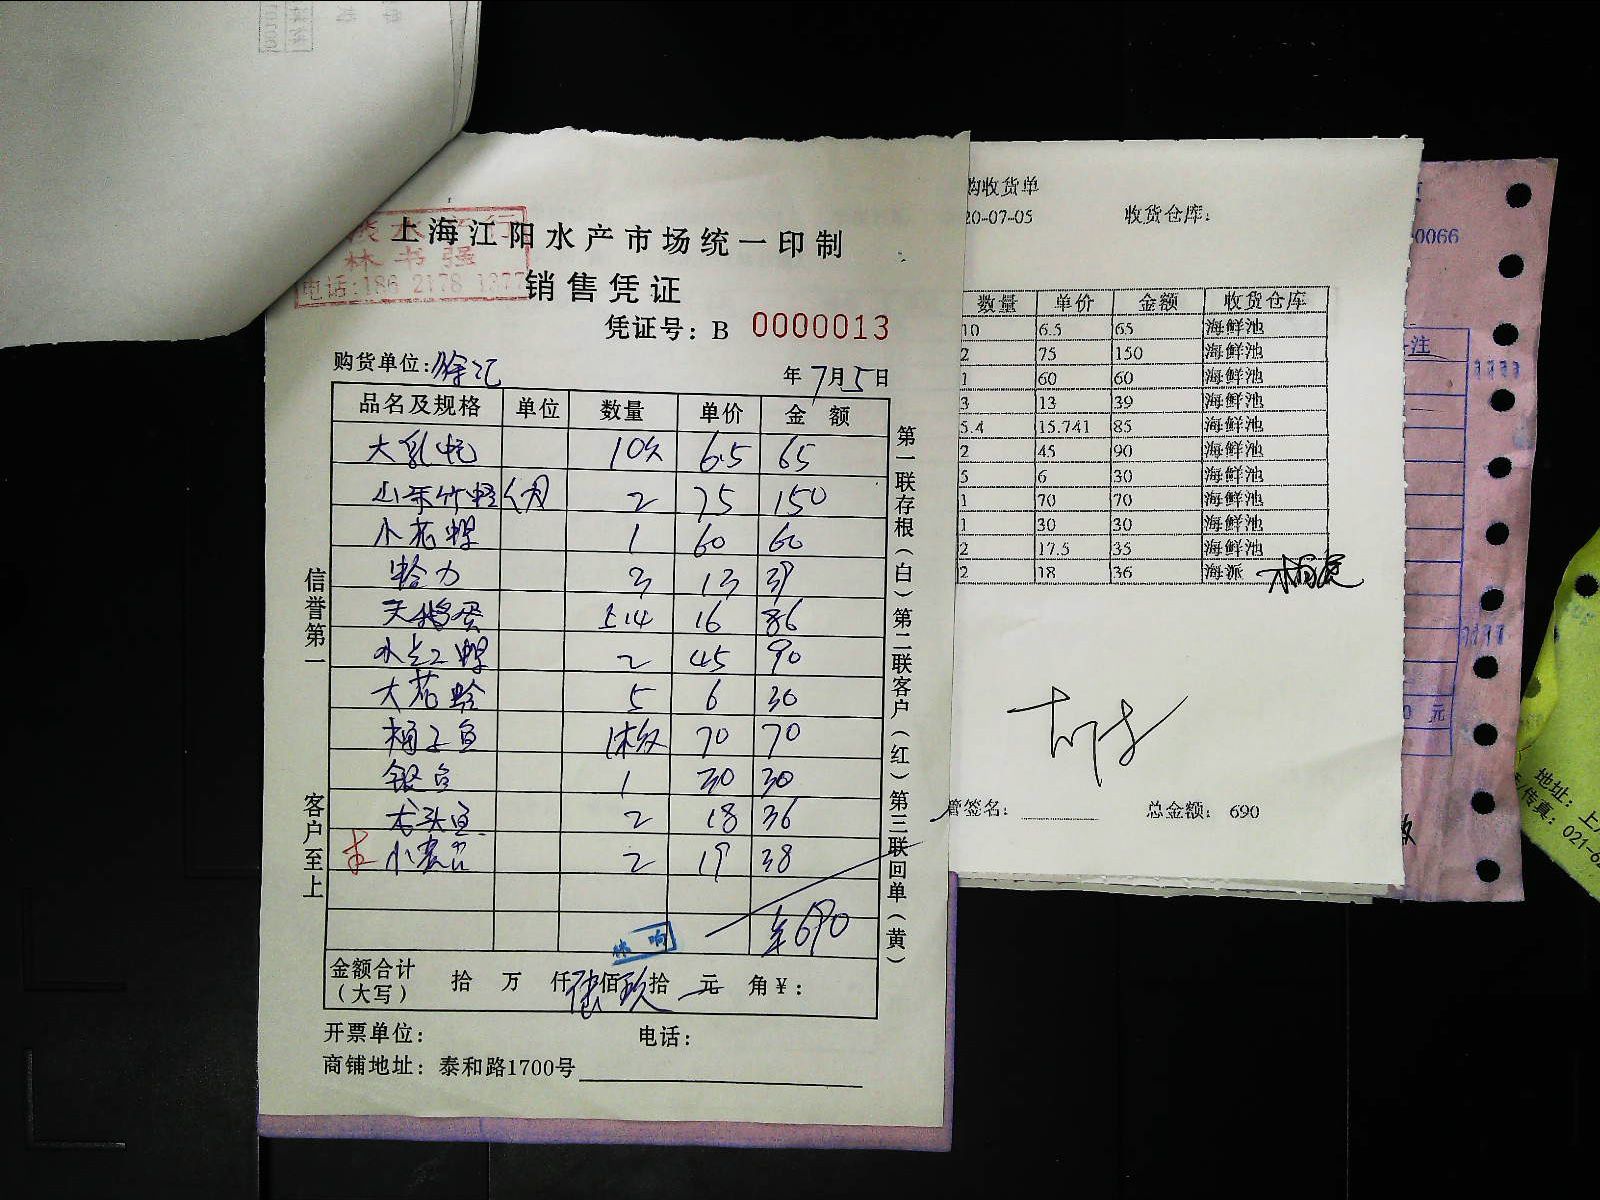 上海江阳水产市场统一印制
林书强
电话:186 2178 1377
销售凭证
凭证号: B 0000013
购货单位: 徐汇
年 7月5日
品名及规格 单位 数量 单价 金额
10 6.5 65
2 75 150
小花螺 1 60 60
哈力 3 13 39
天鹅蛋 5.4 16 86
水点2螺 2 45 90
大花蛤 5 6 30
1 70 70
银鱼 1 30 30
龙头鱼 2 18 36
2 19 38
¥690
林 响
金额合计(大写) 拾 万 仟 陆佰 玖拾 元 角¥:
开票单位: 电话:
商铺地址: 泰和路1700号
信誉第一 客户至上
第一联存根(白)第二联客户(红)第三联回单(黄)
购收货单
20-07-05 收货仓库:
数量 单价 金额 收货仓库
10 6.5 65 海鲜池
2 75 150 海鲜池
1 60 60 海鲜池
3 13 39 海鲜池
5.4 15.741 85 海鲜池
2 45 90 海鲜池
5 6 30 海鲜池
1 70 70 海鲜池
1 30 30 海鲜池
2 17.5 35 海鲜池
2 18 36 海派
管签名: 总金额: 690
0066
注
0 元
地址: 上
/传真: 021-6